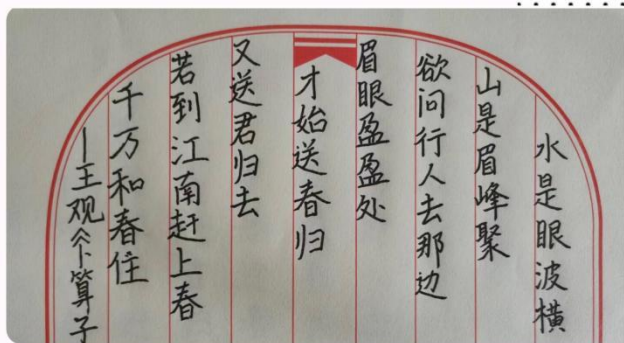 水是眼波横
山是眉峰聚
欲问行人去那边
眉眼盈盈处
才始送春归
又送君归去
若到江南赶上春
千万和春住
—王观《卜算子